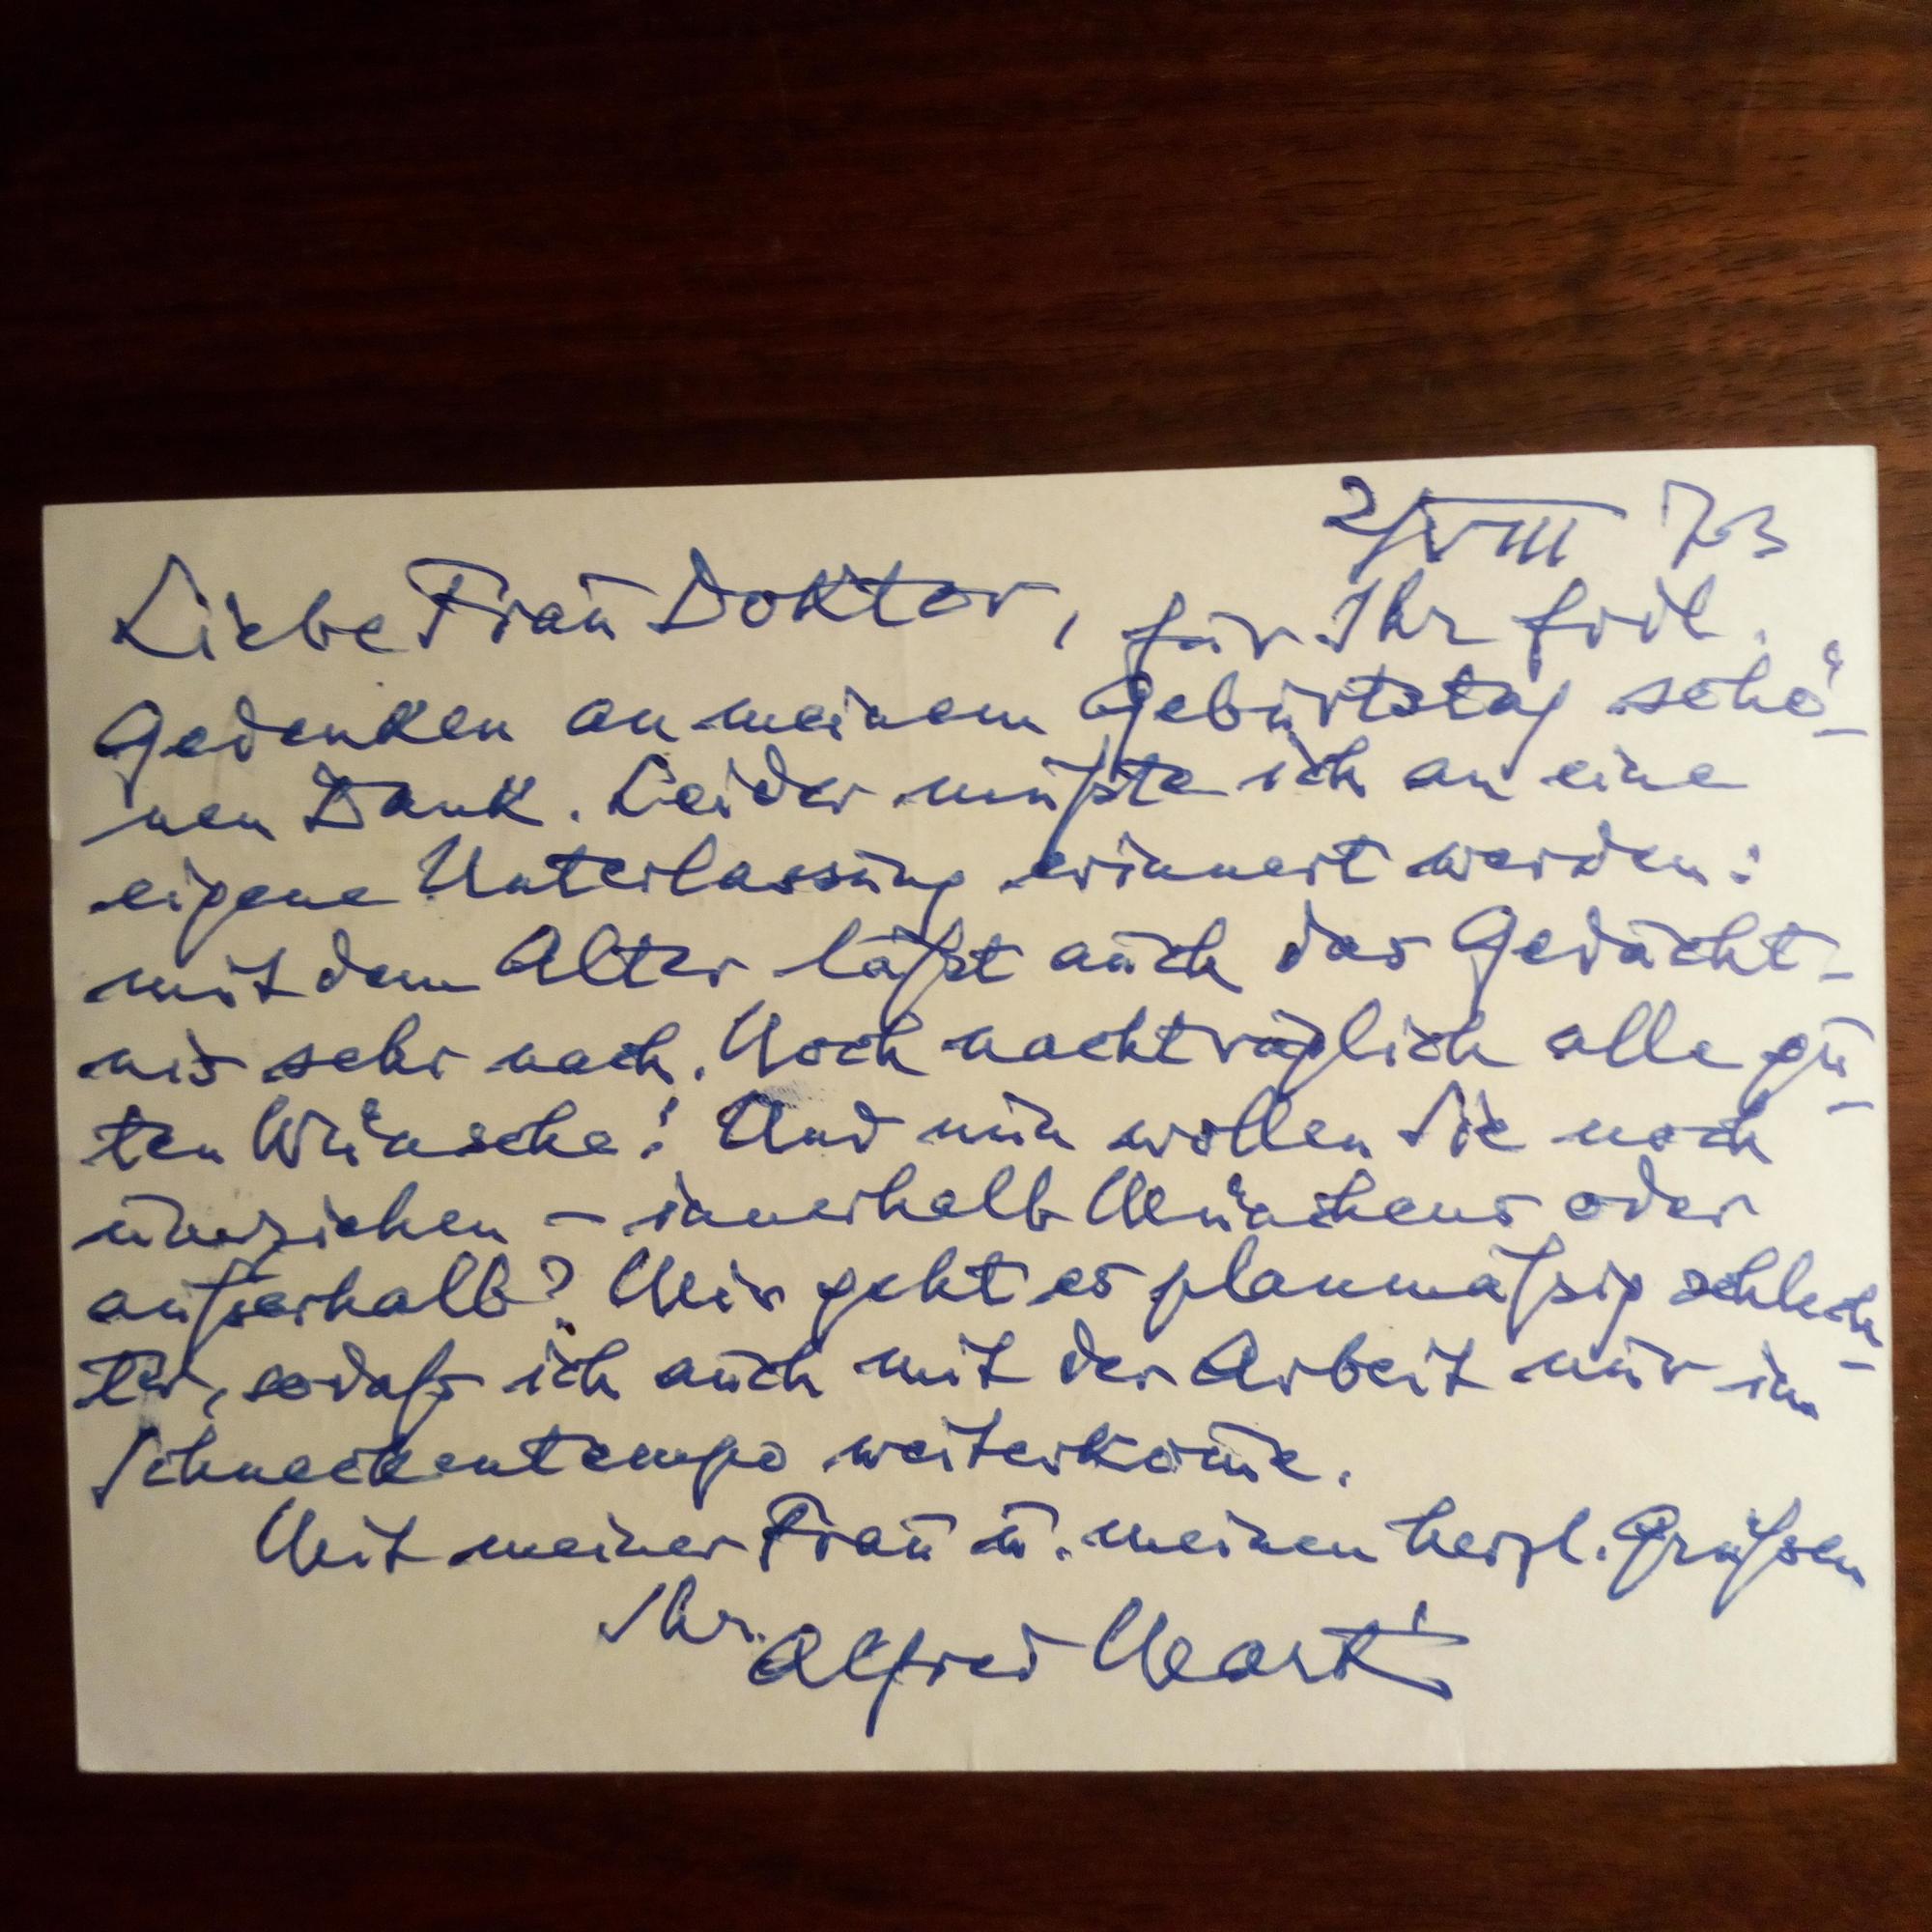 2/VIII 73
Liebe Frau Doktor, für Ihr frdl.
Gedenken an meinem Geburtstag schö-
nen Dank. Leider mußte ich an eine
eigene Unterlassung erinnert werden:
mit dem Alter läßt auch das Gedächt-
nis sehr nach. Noch nachträglich alle gu-
ten Wünsche! Und nun wollen Sie noch
umziehen – innerhalb Münchens oder
außerhalb? Mir geht es planmäßig schlech-
ter, sodaß ich auch mit der Arbeit nur im
Schneckentempo weiterkom̅e.
Mit meiner Frau u. meinen herzl. Grüßen
Ihr
Alfred